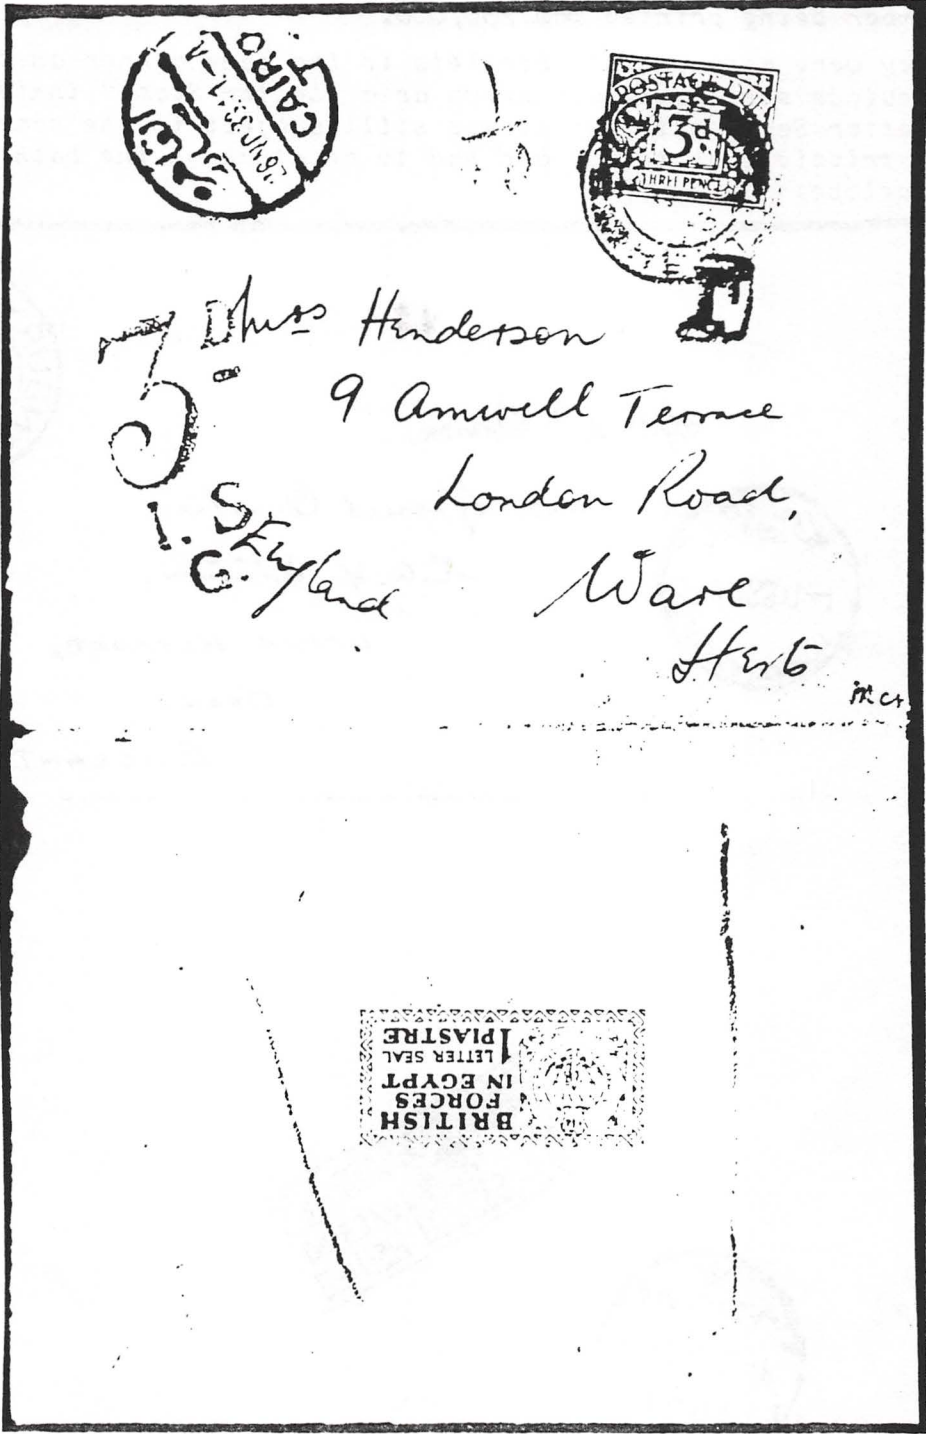 CAIRO
POSTAGE DUE
3d
THREE PENCE
T
3D
Miss Henderson
9 Amwell Terrace
London Road,
Ware
Herts
England
I.S
G.
BRITISH
FORCES
IN EGYPT
LETTER SEAL
1 PIASTRE